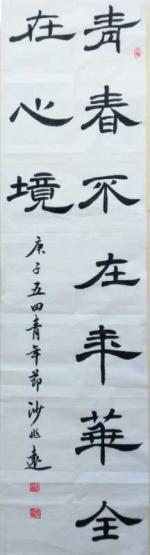 青春不在年華全
在心境
庚子五四青年節沙兆遠